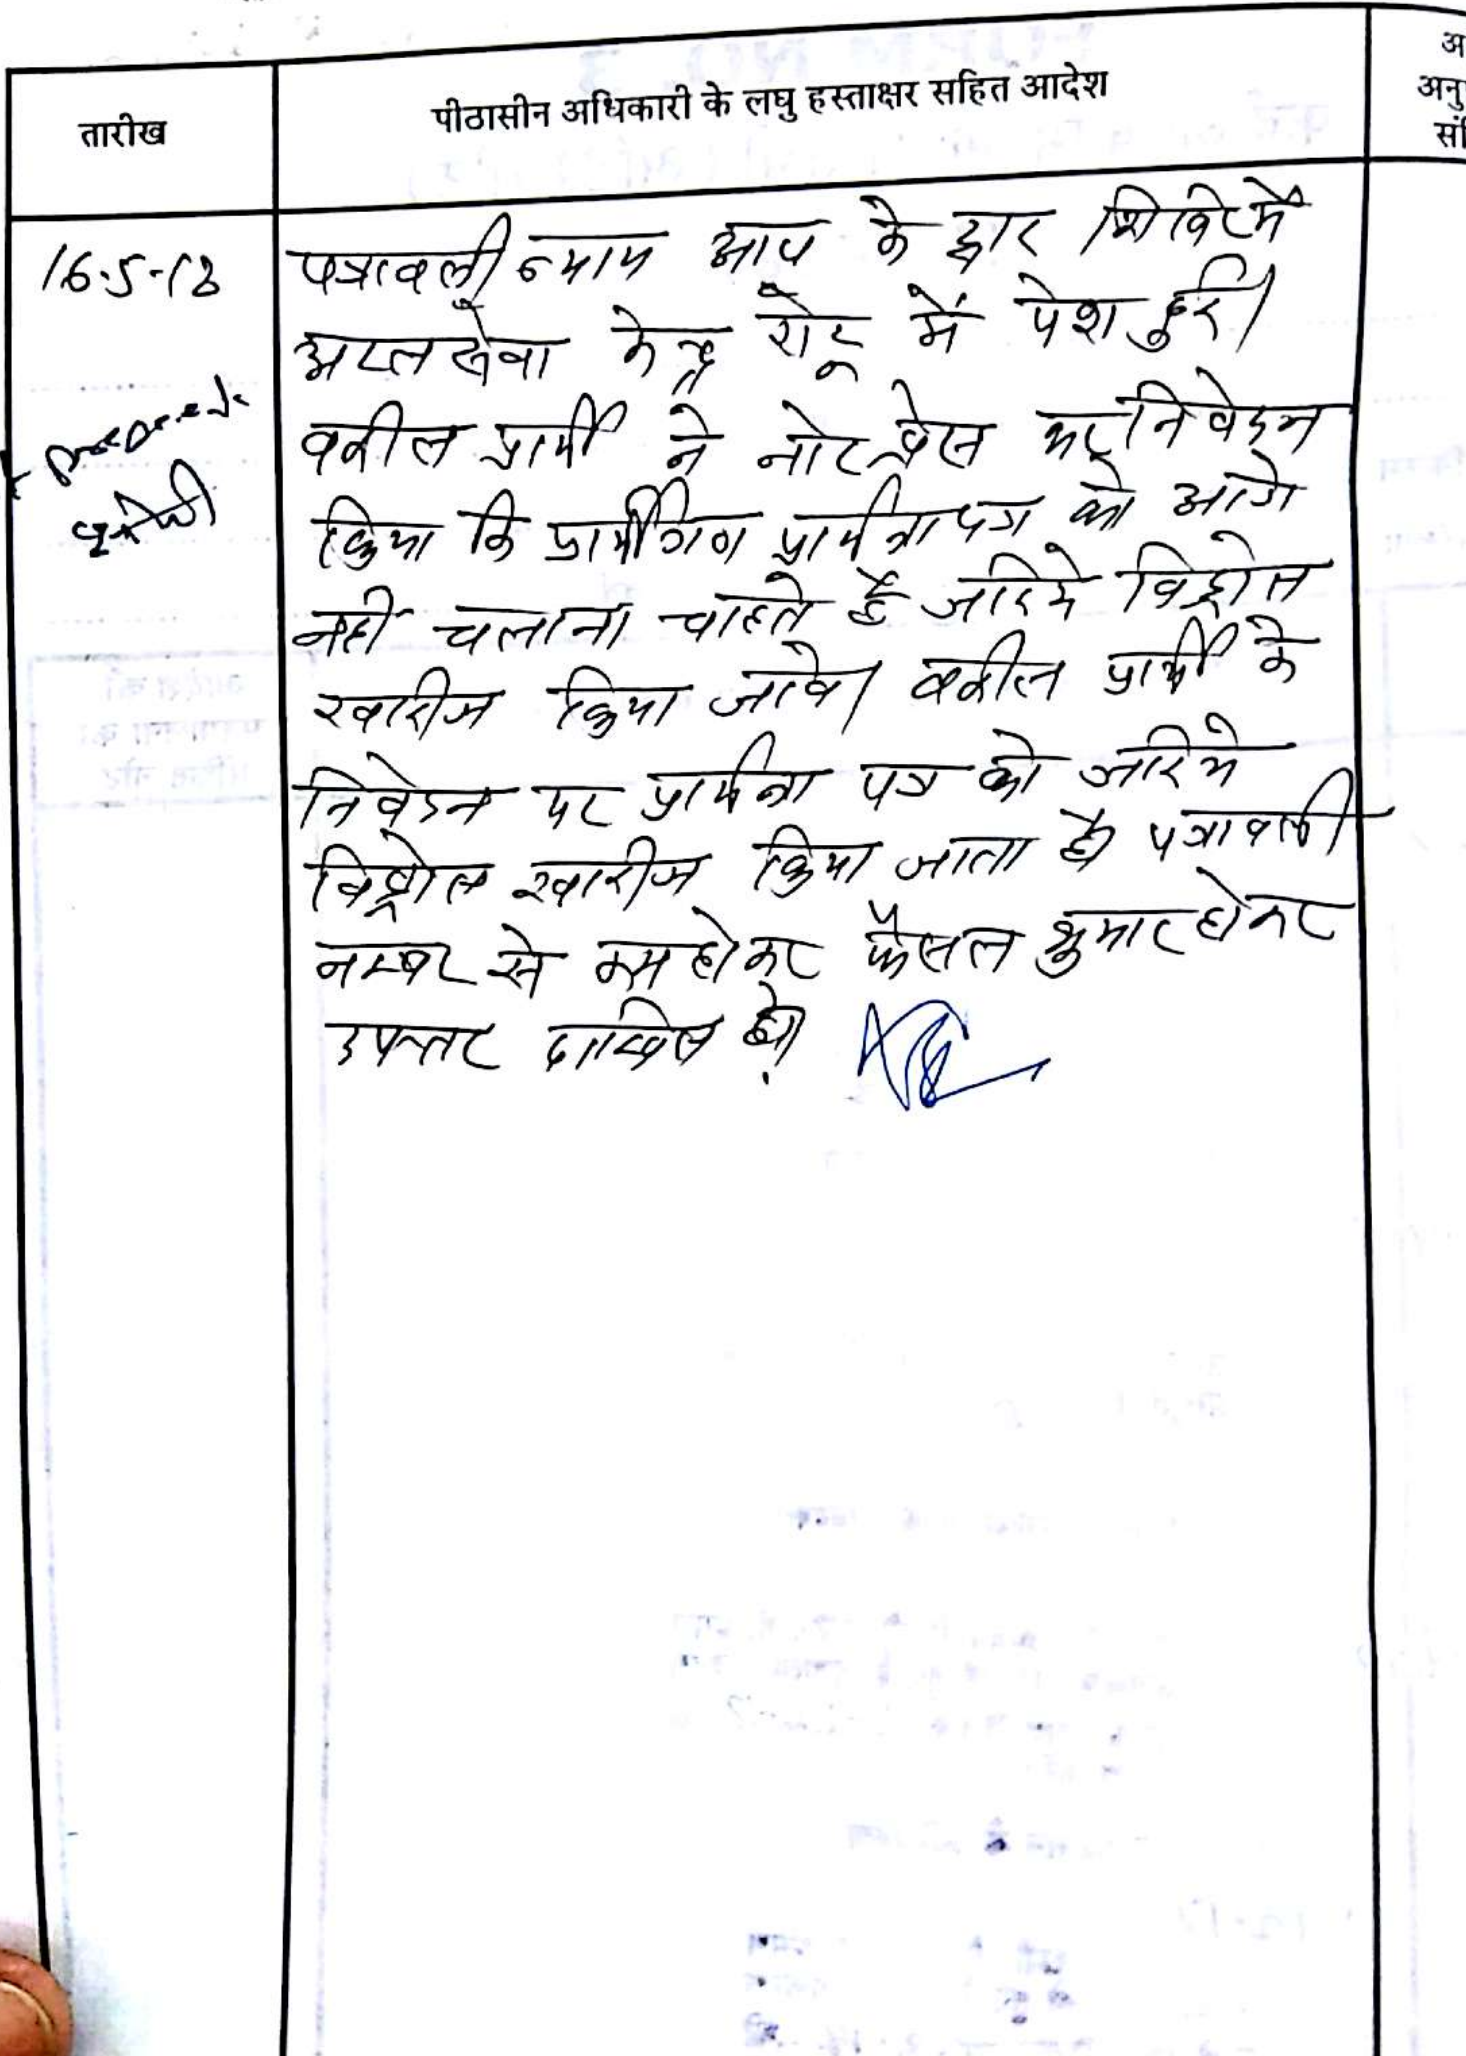 तारीख
पीठासीन अधिकारी के लघु हस्ताक्षर सहित आदेश
अ
अनु
सं
16-5-18
पत्रावली न्याय आप के द्वार शिविर में
अटल सेवा केन्द्र रोटू में पेश हुई।
वकील प्रार्थी ने नोट प्रेस कर निवेदन
किया कि प्रार्थीगण प्रार्थना पत्र को आगे
नही चलाना चाहते है जरिये विड्रोल
खारीज किया जावे। वकील प्रार्थी के
निवेदन पर प्रार्थना पत्र को जरिये
विड्रोल खारीज किया जाता है पत्रावली
नम्बर से कम होकर फैसल शुमार होकर
दफ्तर दाखिल हो।